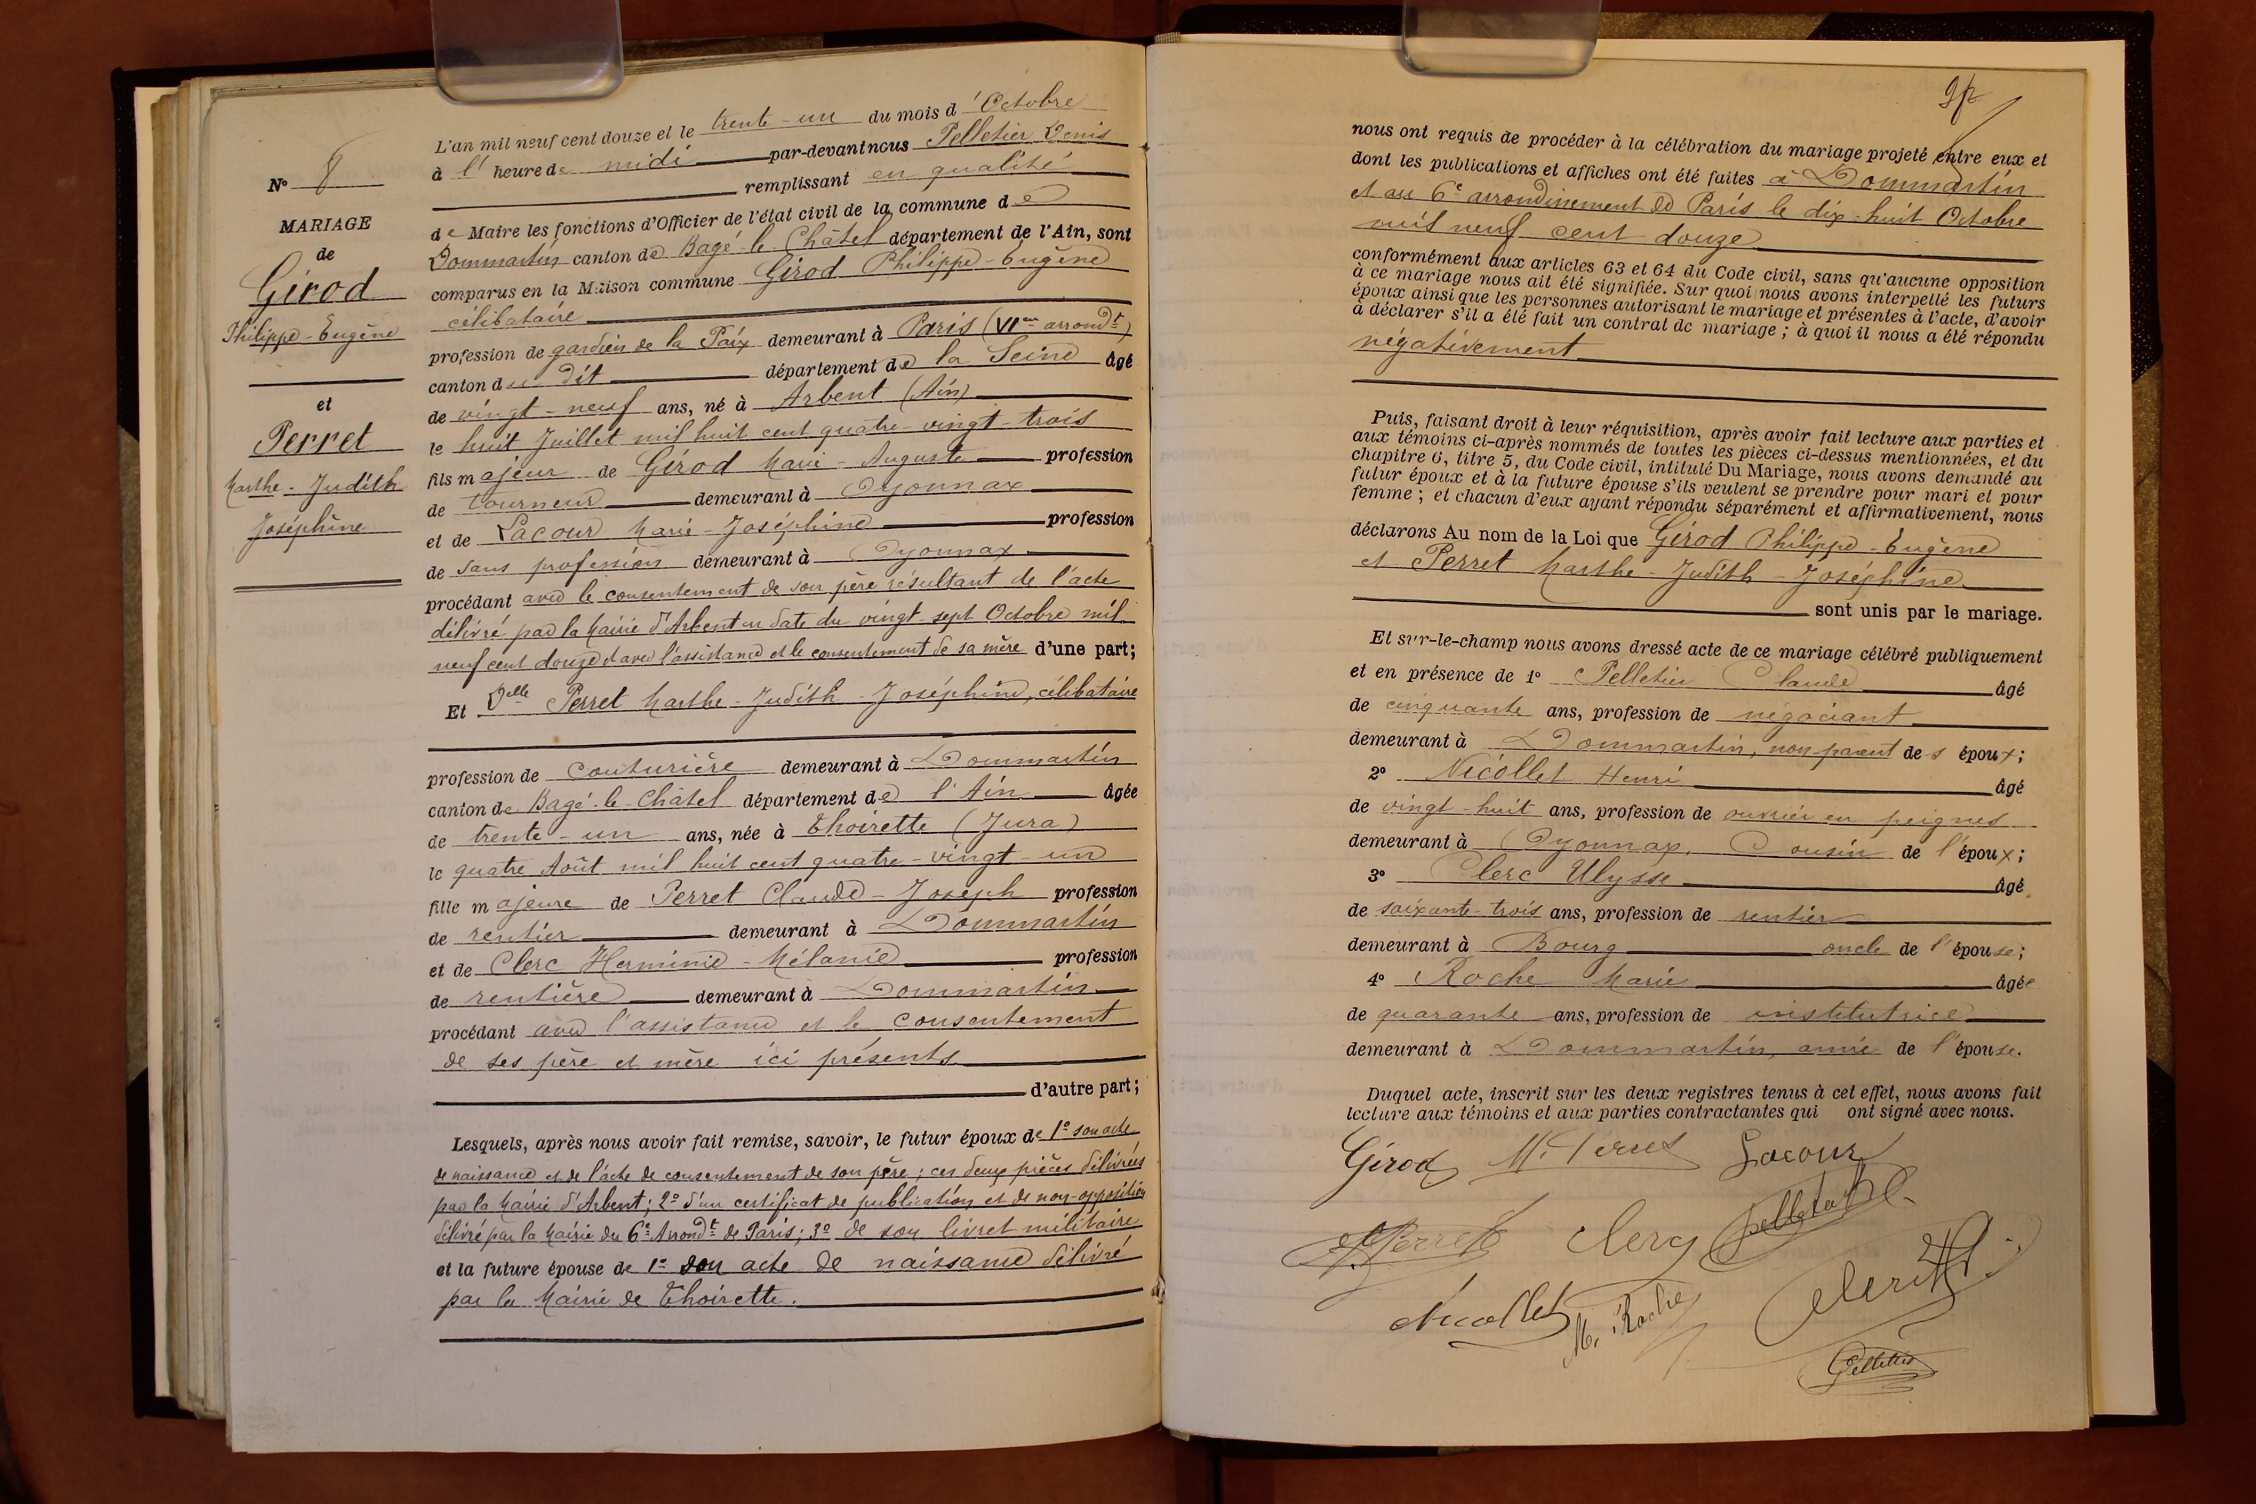 N° 8
MARIAGE
de
Girod
Philippe-Eugène
et
Perret
Marthe-Judith
Joséphine
L'an mil neuf cent douze et le trente-un du mois d'Octobre
à l'heure de midi par-devant nous Pelletier Denis
remplissant en qualité
de Maire les fonctions d'Officier de l'état civil de la commune de
Dommartin canton de Bagé-le-Châtel département de l'Ain, sont
comparus en la Maison commune Girod Philippe-Eugène
célibataire
profession de gardien de la Paix demeurant à Paris (VIem arrondt)
canton du dit département de la Seine âgé
de vingt-neuf ans, né à Arbent (Ain)
le huit Juillet mil huit cent quatre-vingt-trois
fils majeur de Girod Marie-Auguste profession
de tourneur demeurant à Oyonnax
et de Lacour Marie-Joséphine profession
de sans profession demeurant à Oyonnax
procédant avec le consentement de son père résultant de l'acte
délivré par la Mairie d'Arbent en date du vingt-sept Octobre mil
neuf cent douze et avec l'assistance et le consentement de sa mère d'une part;
Et Delle Perret Marthe-Judith-Joséphine, célibataire
profession de couturière demeurant à Dommartin
canton de Bagé-le-Châtel département de l'Ain âgée
de trente-un ans, née à Thoirette (Jura)
le quatre Août mil huit cent quatre-vingt-un
fille majeure de Perret Claude-Joseph profession
de rentier demeurant à Dommartin
et de Clerc Herminie-Mélanie profession
de rentière demeurant à Dommartin
procédant avec l'assistance et le consentement
de ses père et mère ici présents
d'autre part;
Lesquels, après nous avoir fait remise, savoir, le futur époux de 1° son acte
de naissance et de l'acte de consentement de son père; ces deux pièces délivrées
par la Mairie d'Arbent; 2° d'un certificat de publication et de non-opposition
délivré par la Mairie du 6e Arrondt de Paris; 3° de son livret militaire
et la future épouse de 1° son acte de naissance délivré
par la Mairie de Thoirette.
nous ont requis de procéder à la célébration du mariage projeté entre eux et
dont les publications et affiches ont été faites à Dommartin
et au 6e arrondissement de Paris le dix-huit Octobre
mil neuf cent douze
conformément aux articles 63 et 64 du Code civil, sans qu'aucune opposition
à ce mariage nous ait été signifiée. Sur quoi nous avons interpellé les futurs
époux ainsi que les personnes autorisant le mariage et présentes à l'acte, d'avoir
à déclarer s'il a été fait un contrat de mariage; à quoi il nous a été répondu
négativement
Puis, faisant droit à leur réquisition, après avoir fait lecture aux parties et
aux témoins ci-après nommés de toutes les pièces ci-dessus mentionnées, et du
chapitre 6, titre 5, du Code civil, intitulé Du Mariage, nous avons demandé au
futur époux et à la future épouse s'ils veulent se prendre pour mari et pour
femme; et chacun d'eux ayant répondu séparément et affirmativement, nous
déclarons Au nom de la Loi que Girod Philippe-Eugène
et Perret Marthe-Judith-Joséphine
sont unis par le mariage.
Et sur-le-champ nous avons dressé acte de ce mariage célébré publiquement
et en présence de 1° Pelletier Claude âgé
de cinquante ans, profession de négociant
demeurant à Dommartin, non parent des époux;
2° Nicollet Henri âgé
de vingt-huit ans, profession de ouvrier en peignes
demeurant à Oyonnax, Cousin de l'époux;
3° Clerc Ulysse âgé
de soixante-trois ans, profession de rentier
demeurant à Bourg oncle de l'épouse;
4° Roche Marie âgée
de quarante ans, profession de institutrice
demeurant à Dommartin, amie de l'épouse.
Duquel acte, inscrit sur les deux registres tenus à cet effet, nous avons fait
lecture aux témoins et aux parties contractantes qui ont signé avec nous.
Girod M. Perret Lacour
Perret Clerc Pelletier
Nicollet M. Roche Clerc
Pelletier